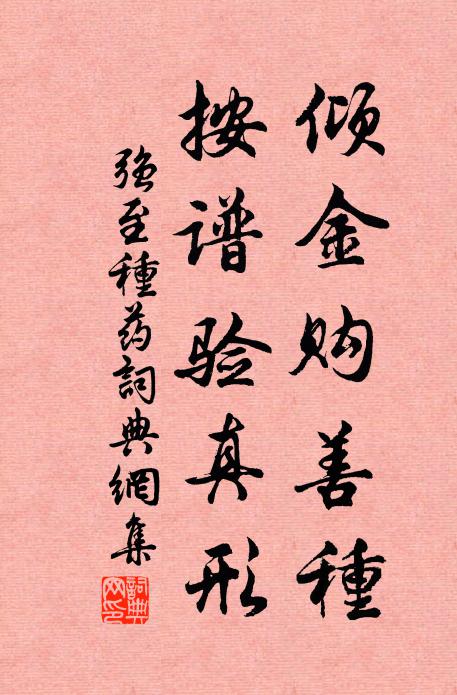 倾金购善種
按谱验真形
强至種药詞典網集
詞典網印